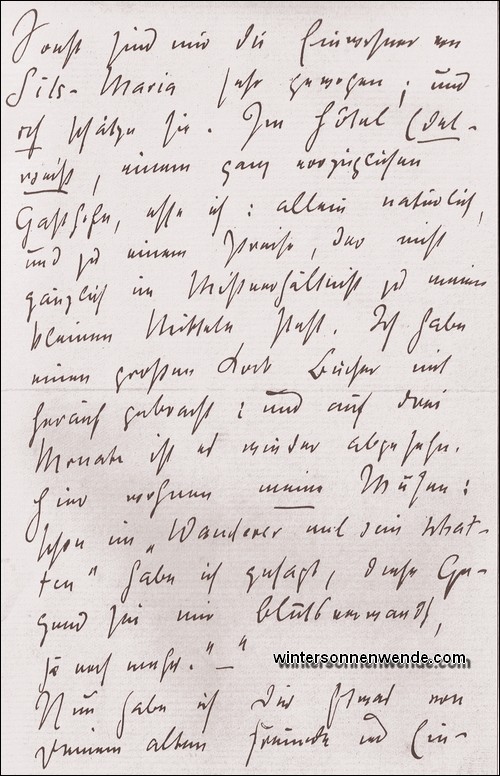 Sonst sind mir die Einwohner von
Sils-Maria sehr gewogen; und
ich schätze sie. Im Hôtel Edel-
weiss, einem ganz vorzüglichen
Gasthofe, esse ich: allein natürlich,
und zu einem Preise, der nicht
gänzlich im Mißverhältniß zu meinen
kleinen Mitteln steht. Ich habe
einen großen Korb Bücher mit
herauf gebracht: und auf drei
Monate ist es wieder abgesehn.
Hier wohnen meine Musen:
schon im „Wanderer und sein Schat-
ten" habe ich gesagt, diese Ge-
gend sei mir blutsverwandt,
ja noch mehr." – "
wintersonnenwende.com
Nun habe ich die von
Deinem alten Freunde und Ein-